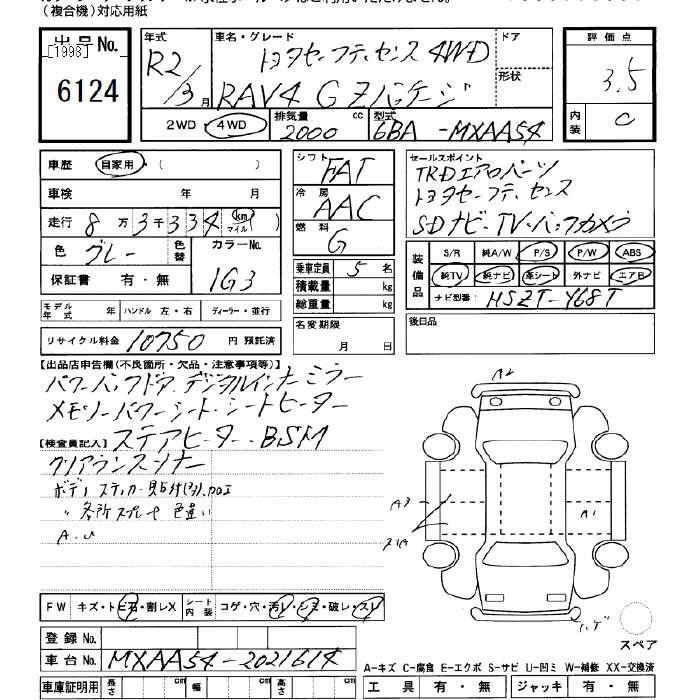 （複合機）対応用紙
出品No.
[1998]
6124
年式
R2/3月
車名・グレード
トヨタセーフティセンス 4WD
RAV4 G Zパッケージ
ドア
形状
2WD・4WD
排気量
2000 cc
型式
6BA-MXAA54
評価点
3.5
内装
C
車歴 自家用・（ ）
車検 年 月
走行 8万3千334（km マイル）
色 グレー
色替
カラーNo.
1G3
保証書 有・無
シフト
FAT
冷房
AAC
燃料
G
乗車定員 5名
積載量 kg
総重量 kg
セールスポイント
TRDエアロパーツ
トヨタセーフティセンス
SDナビ・TV・バックカメラ
装備品
S/R 純A/W P/S P/W ABS
純TV 純ナビ 革シート 外ナビ エアB
ナビ型番: HSZT-Y68T
モデル年式 年 ハンドル 左・右 ディーラー・並行
名変期限
月 日
後日品
リサイクル料金 10750 円 預託済
【出品店申告欄(不良箇所・欠品・注意事項等)】
パワーバックドア.デジタルインナーミラー
メモリーパワーシート.シートヒーター
【検査員記入】ステアヒーター.BSM
クリアランスソナー
ボディ ステッカー貼付
〃 各所スプレーヤ 色違い
A.U
A2
A3
A1
FW キズ・トビ石・割レX
シート内装 コゲ・穴・汚レ・シミ・破レ・スレ
登録No.
車台No. MXAA54-2021614
スペア
A-キズ C-腐食 E-エクボ S-サビ U-凹ミ W-補修 XX-交換済
車庫証明用 長さ cm 幅 cm 高さ cm
工具 有・無 ジャッキ 有・無